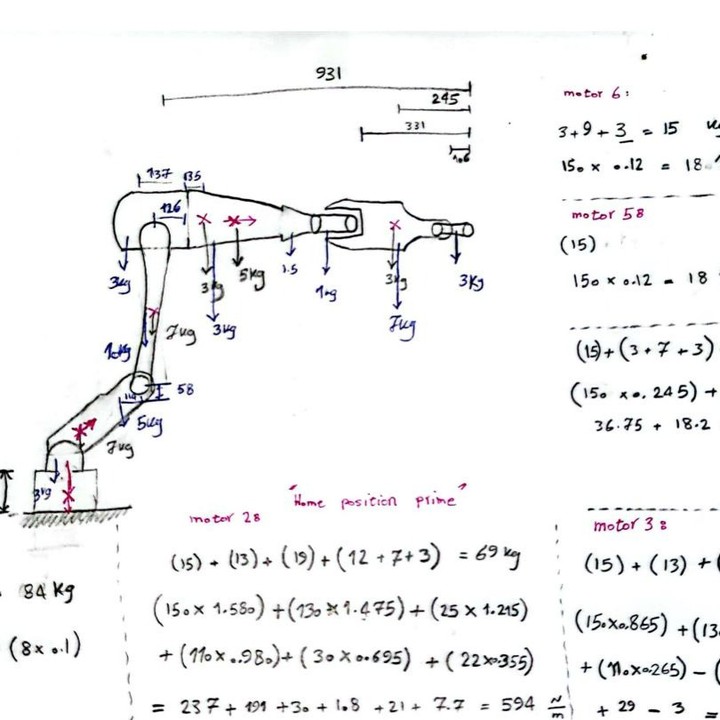 931
245
331
106
137 135
126
3kg
3kg
5kg
3kg
1.5
1kg
3kg
7kg
3kg
10kg
7kg
58
5kg
7kg
3kg
motor 6:
3+9+3 = 15
150 x 0.12 = 18
motor 58
(15)
150 x 0.12 = 18
(15)+(3+7+3)
(150 x 0.245) +
36.75 + 18.2
"Home position prime"
motor 28
(15) + (13) + (19) + (12 + 7 + 3) = 69 kg
(150 x 1.580) + (130 x 1.475) + (25 x 1.215)
+ (110 x 0.980) + (30 x 0.695) + (22 x 0.355)
= 237 + 191 + 30 + 1.8 + 21 + 7.7 = 594 N/m
84 kg
(8 x 0.1)
motor 38
(15) + (13) + (
(150x0.865) + (13
+ (110x0.265) - (
+ 29 - 3 =